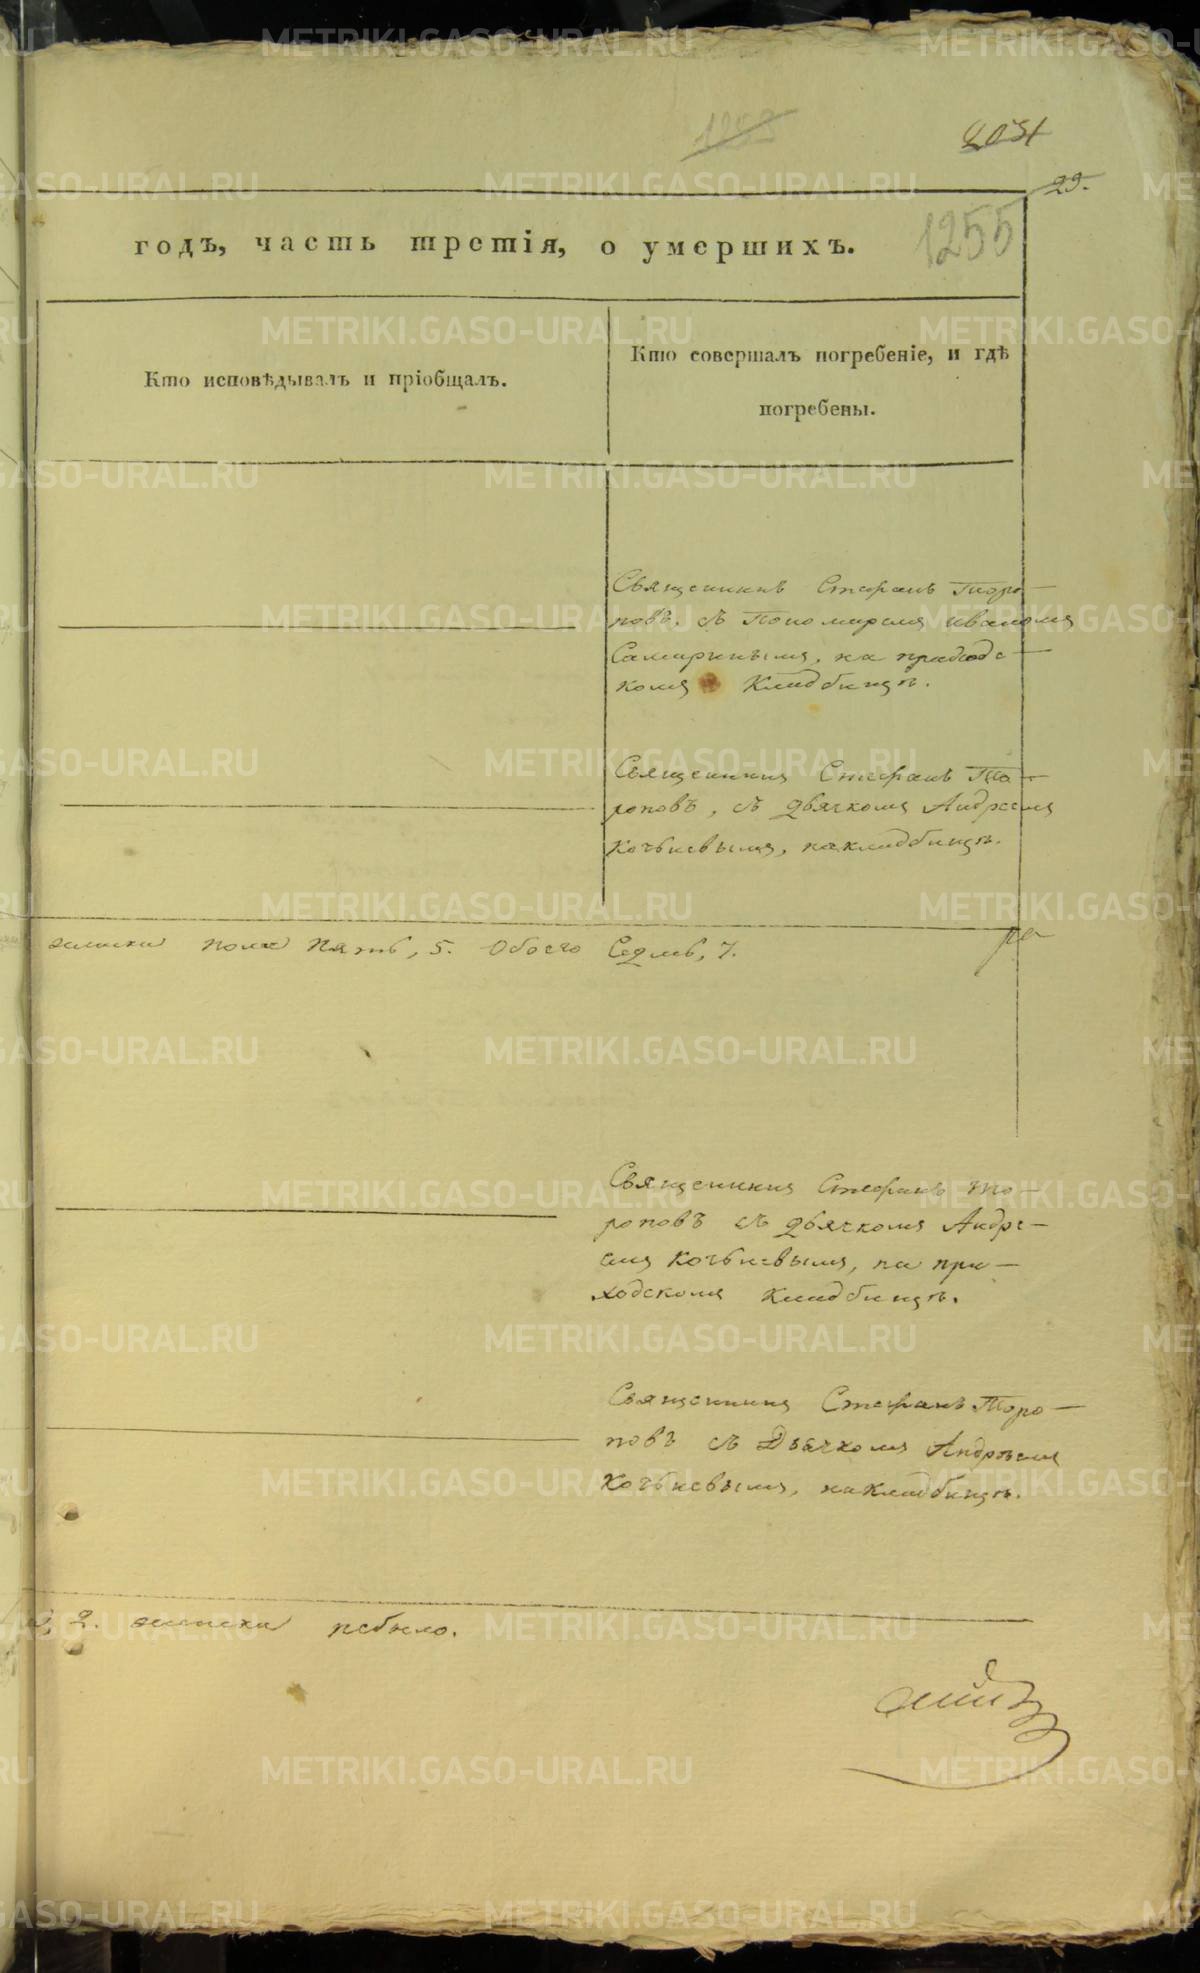 2031
29.
1255
годъ, часть третія, о умершихъ.
Кто исповѣдывалъ и пріобщалъ.
Кто совершалъ погребеніе, и гдѣ
погребены.
Священникъ Стефанъ Торо-
повъ, съ Пономаремъ иваномъ
Самаринымъ, на приходс-
комъ Кладбищѣ.
Священникъ Стефанъ То-
роповъ, съ дьячкомъ Андреемъ
Кочьневымъ, на кладбищѣ.
женска пола пять, 5. Обоего Седмь, 7.
Священникъ Стефанъ то-
роповъ съ дьячкомъ Андре-
емъ Кочьневымъ, на при-
ходскомъ кладбищѣ.
Священникъ Стефанъ Торо-
повъ съ Дьячкомъ Андреемъ
Кочьневымъ, на Кладбищѣ.
2. женска небыло.
METRIKI.GASO-URAL.RU